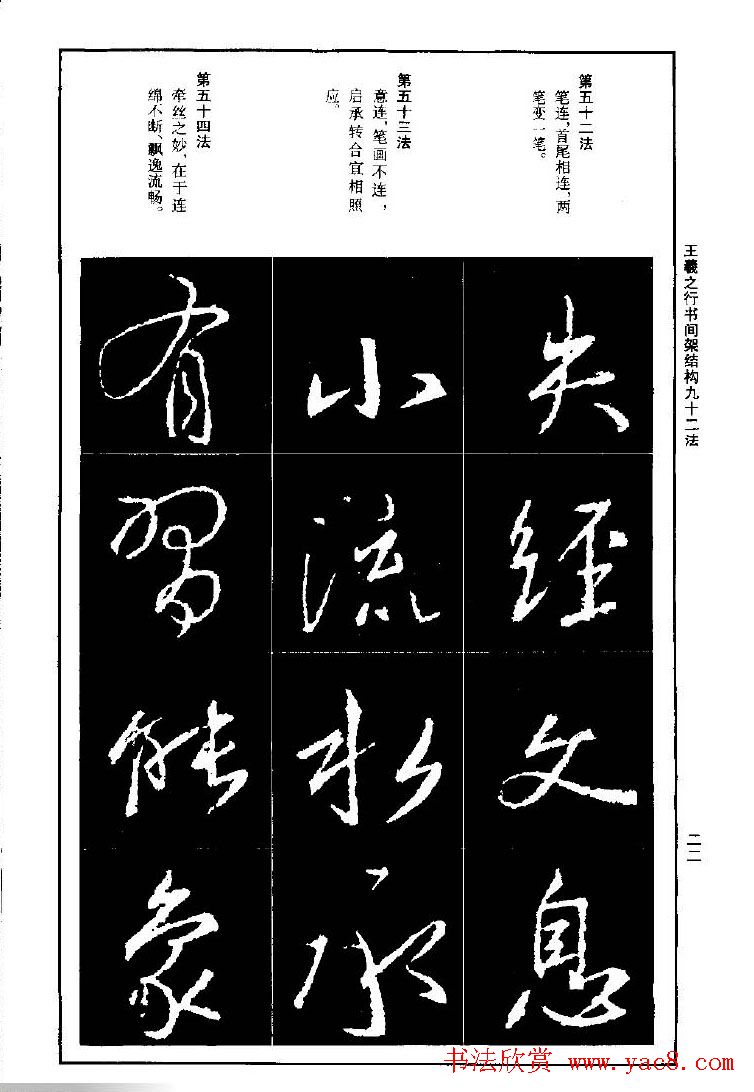 王羲之行书间架结构九十二法
二二
第五十二法
笔连,首尾相连,两
笔变一笔。
第五十三法
意连,笔画不连,
启承转合宜相照
应。
第五十四法
牵丝之妙,在于连
绵不断、飘逸流畅。
失
经
文
息
小
流
水
承
有
習
能
象
书法欣赏 www.yac8.com